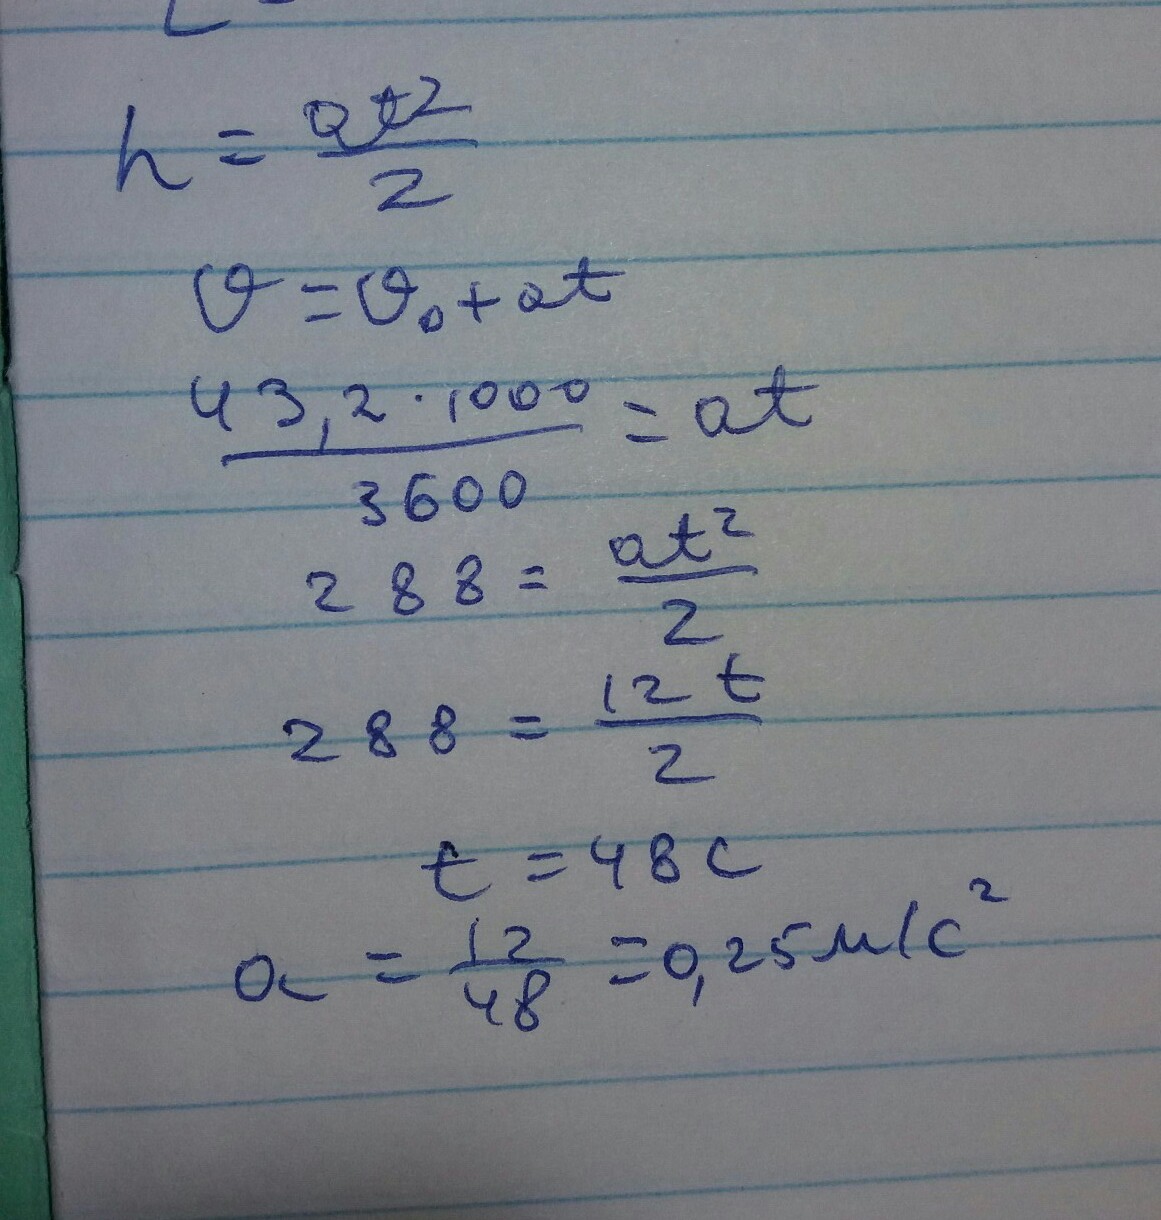 h = at²/2
v = v₀ + at
43,2 · 1000/3600 = at
288 = at²/2
288 = 12t/2
t = 48 с
a = 12/48 = 0,25 м/с²